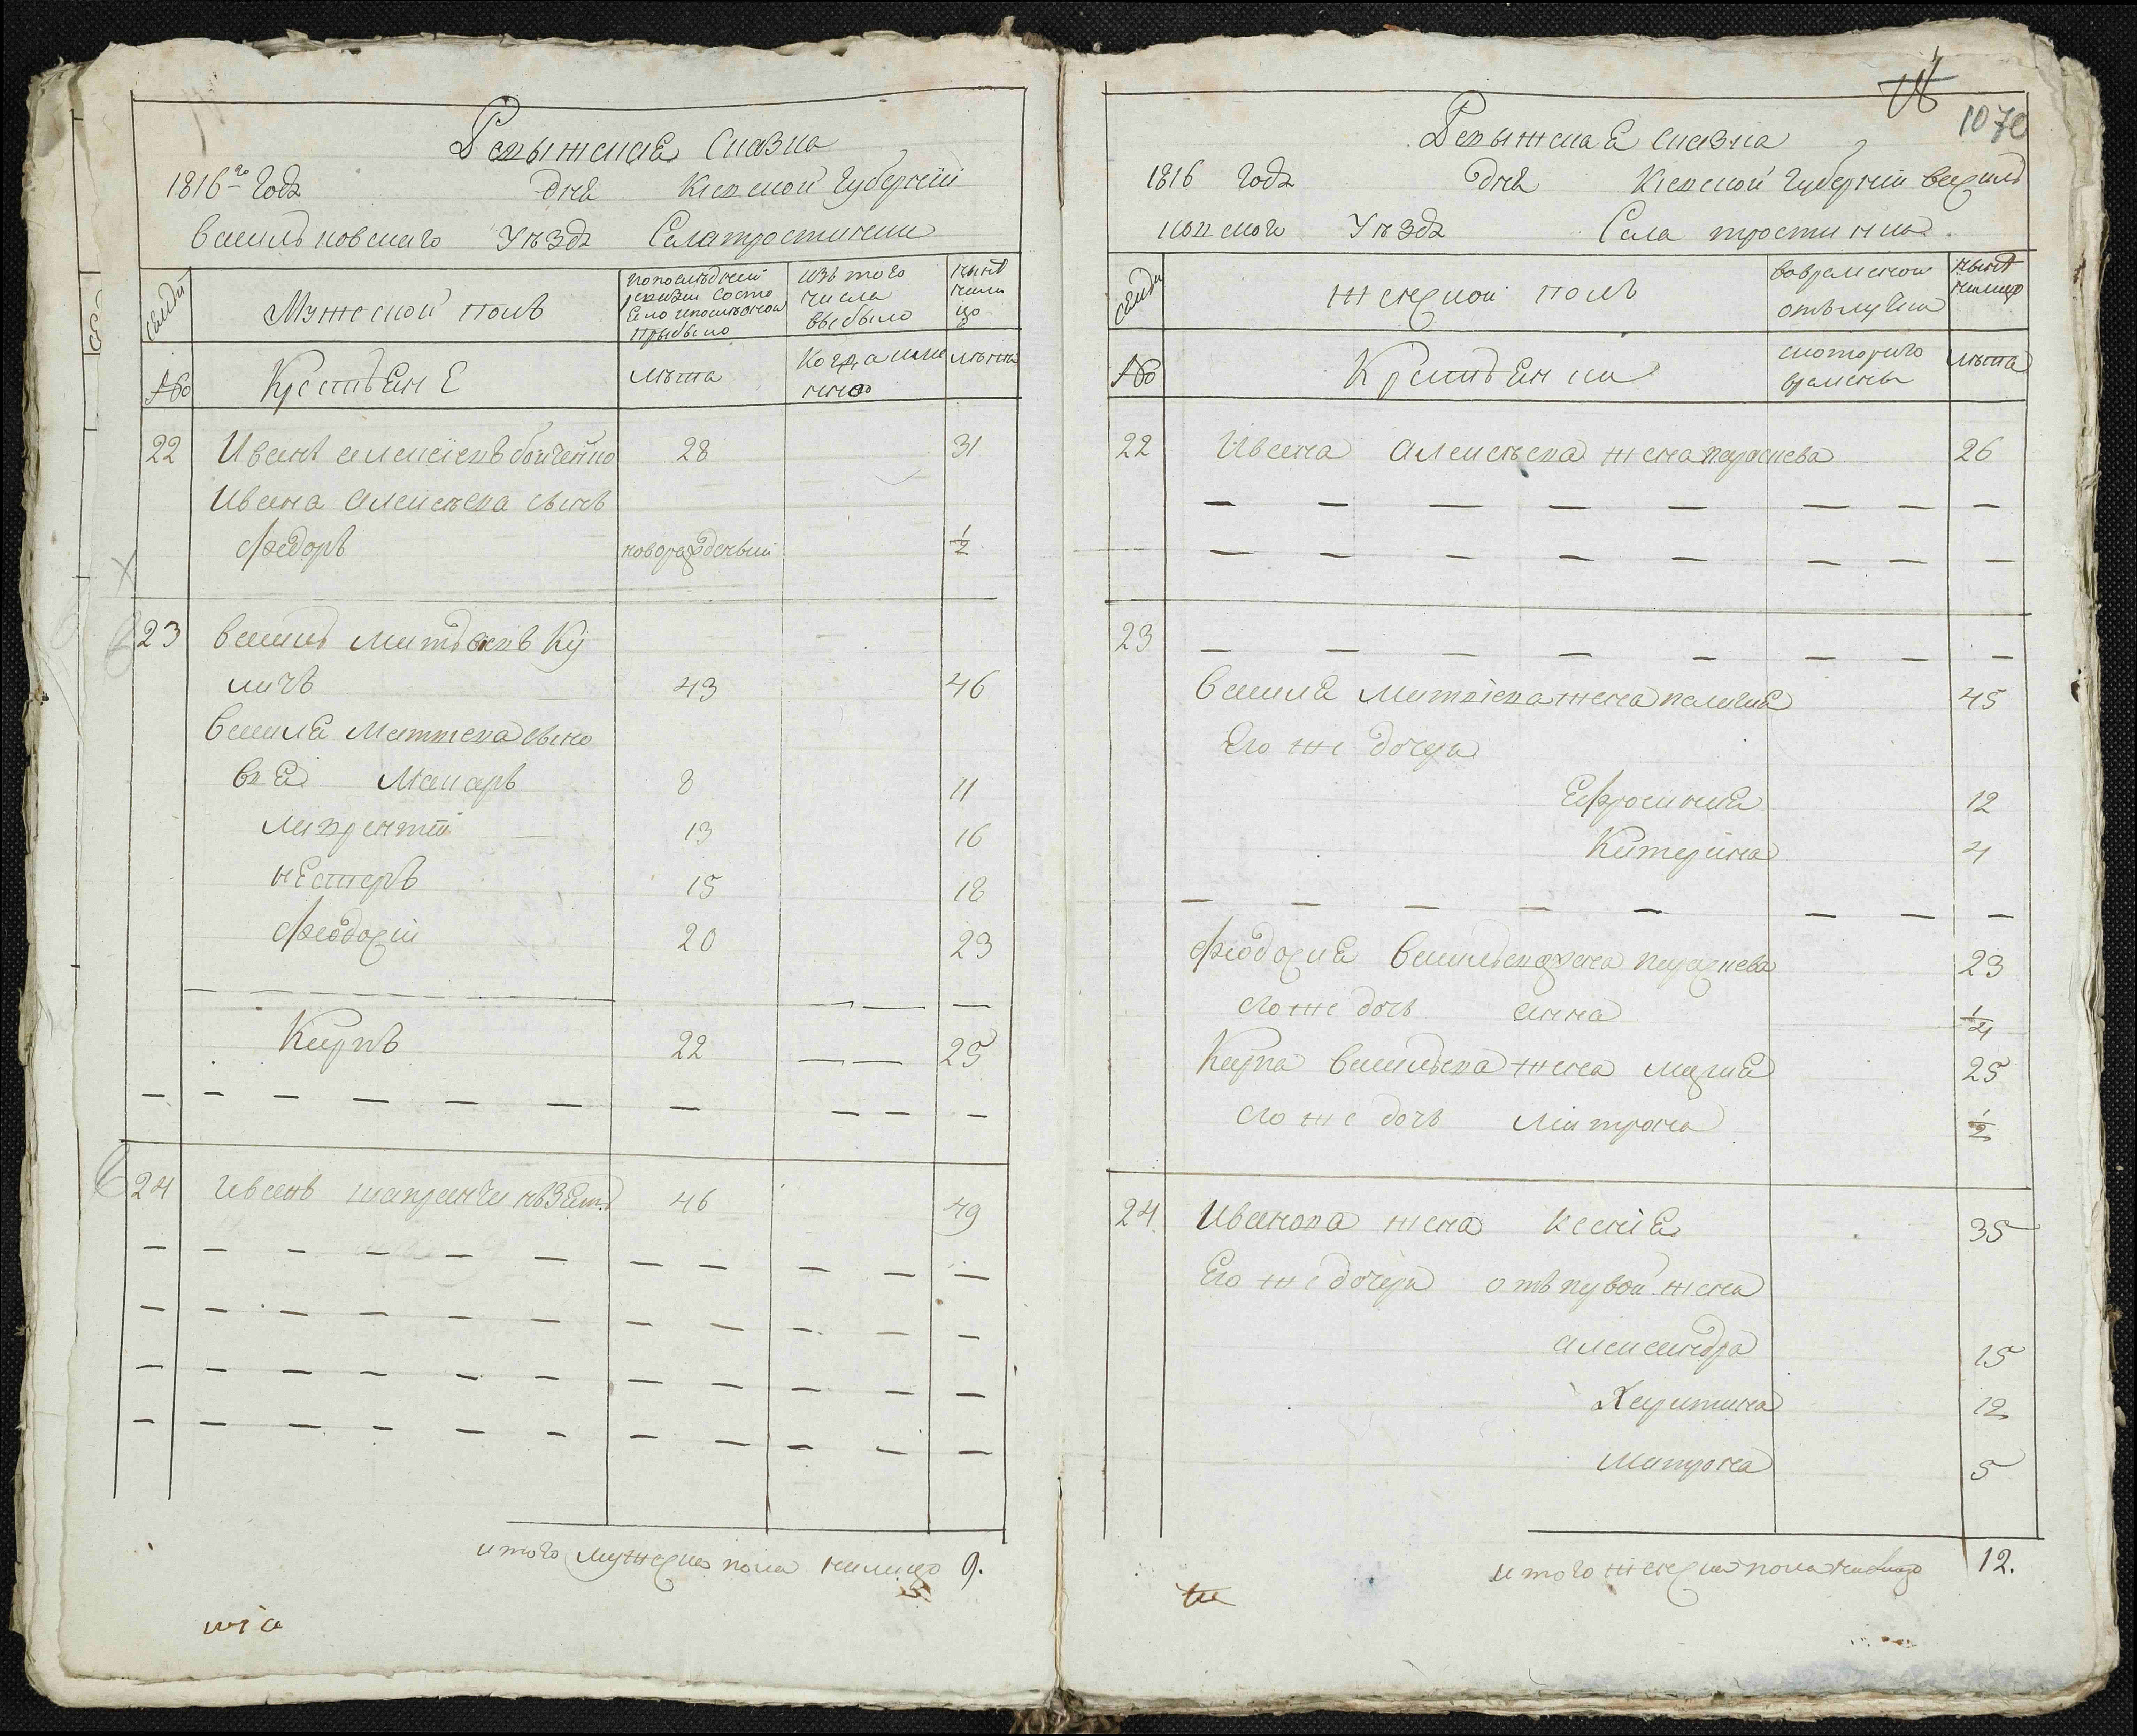 Ревыжская Сказка
1816го Годa дня Киевской Губернiи
васильковскаго Уѣзда Села тростинки
семьи
Мужеской полъ
по последней ревизии состояло и после оной прыбыло
изъ того числа выбыло
нынѣ на лицо
№
Крестьяне
лѣта
Когда именно
лѣта
22 Иванъ алексіевъ бойченко 28 31
Ивана алексѣева сынъ
Федоръ новорожденный 1/2
23 василь матвѣевъ Ку
личъ 43 46
василя Матвіева сыно
вья Макаръ 8 11
лаврентій 13 16
нестеръ 15 18
Феодосій 20 23
Карпъ 22 25
24 иванъ зять 46 49
итого мужеска пола налицо 9.
1070
Ревыжская сказка
1816 Года дня Киевской Губерніи василь
ковского Уѣзда Села тростинка
семьи
женской полъ
во временной отлучки
нынѣ налицо
№
Крестьянки
с которого времены
лѣта
22 Ивана Алексѣева жена параскева 26
23
василя Матвіева жена пелагия 45
Его же дочери
Ефросиния 12
Катерина 4
Феодосия васильева жена параскева 23
его же дочь анна 1/4
Карпа васильева жена мария 25
его же дочь Матрона 1/2
24 Иванова жена ксенія 35
Его же дочери отъ первой жены
александра 15
Харитина 12
Матрона 5
итого женска пола налицо 12.